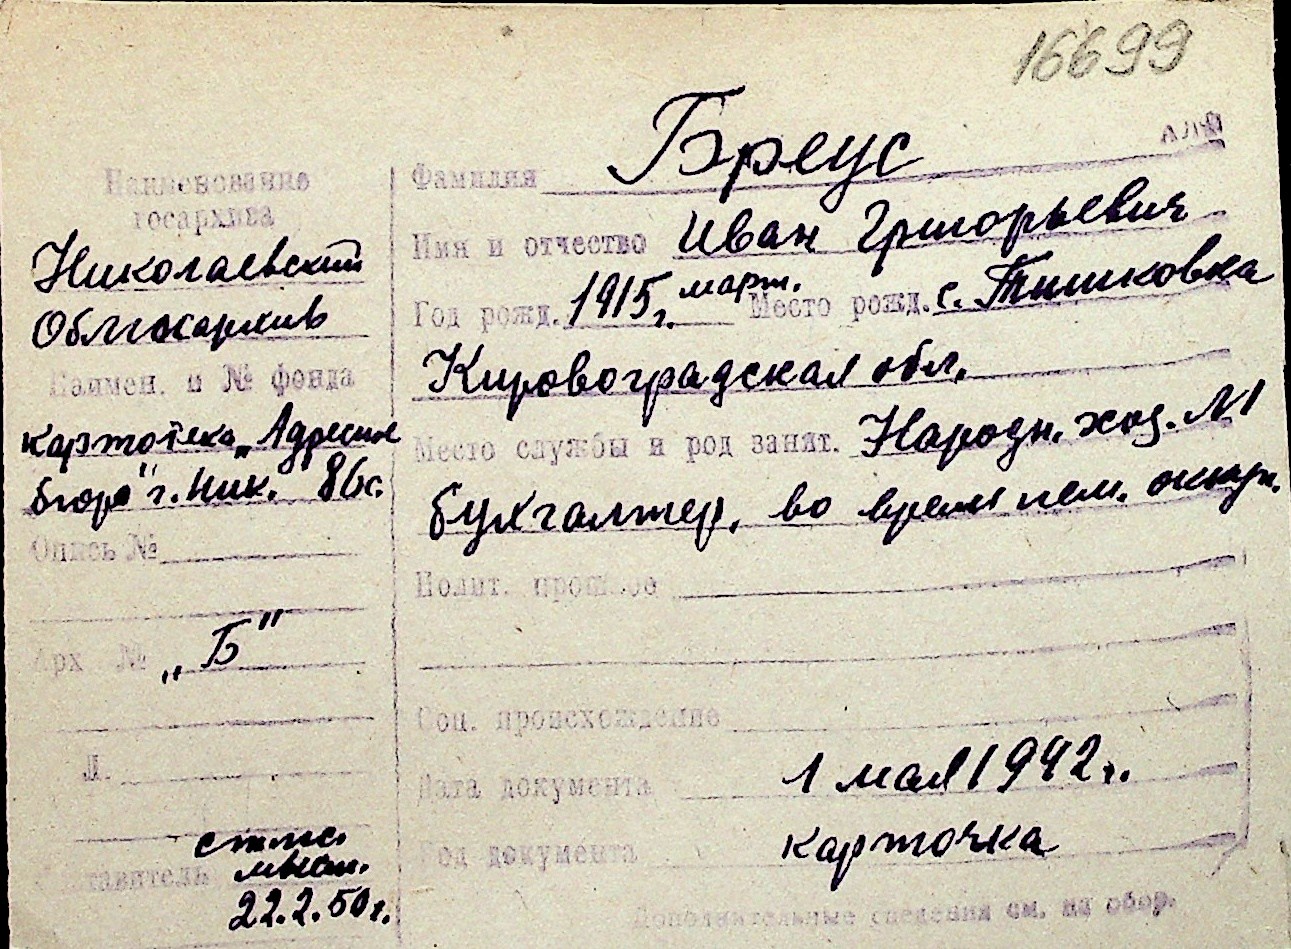 16699
Наименование
госархива
Николаевский
Облгосархив
Наимен. и № фонда
картотека „Адресн
бюро" г. Ник.
Опись №
Арх №
„Б"
Л.
22.2.50 г.
Фамилия Бреус
Имя и отчество Иван Григорьевич
Год рожд. 1915 г. март. Место рожд. с. Тишковка
Кировоградская обл.
Место службы и род занят. Народн. хоз. №1
бухгалтер, во время нем. оккуп.
Полит. прошлое
Соц. происхождение
Дата документа 1 мая 1942 г.
Род документа карточка
Дополнительные сведения см. на обор.